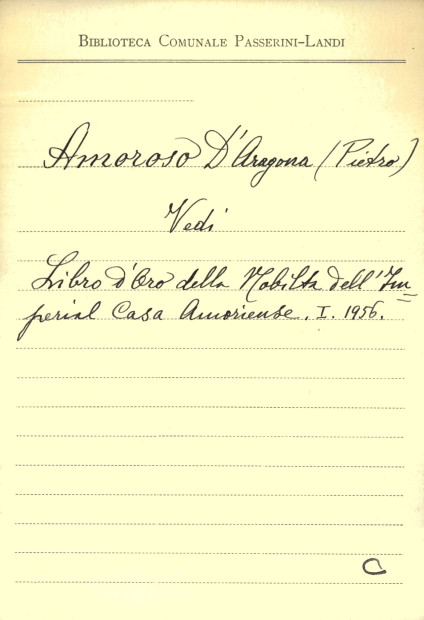 BIBLIOTECA COMUNALE PASSERINI-LANDI
Amoroso D'Aragona (Pietro)
Vedi
Libro d'Oro della Nobiltà dell'Im=
perial Casa Amoriense. I. 1956.